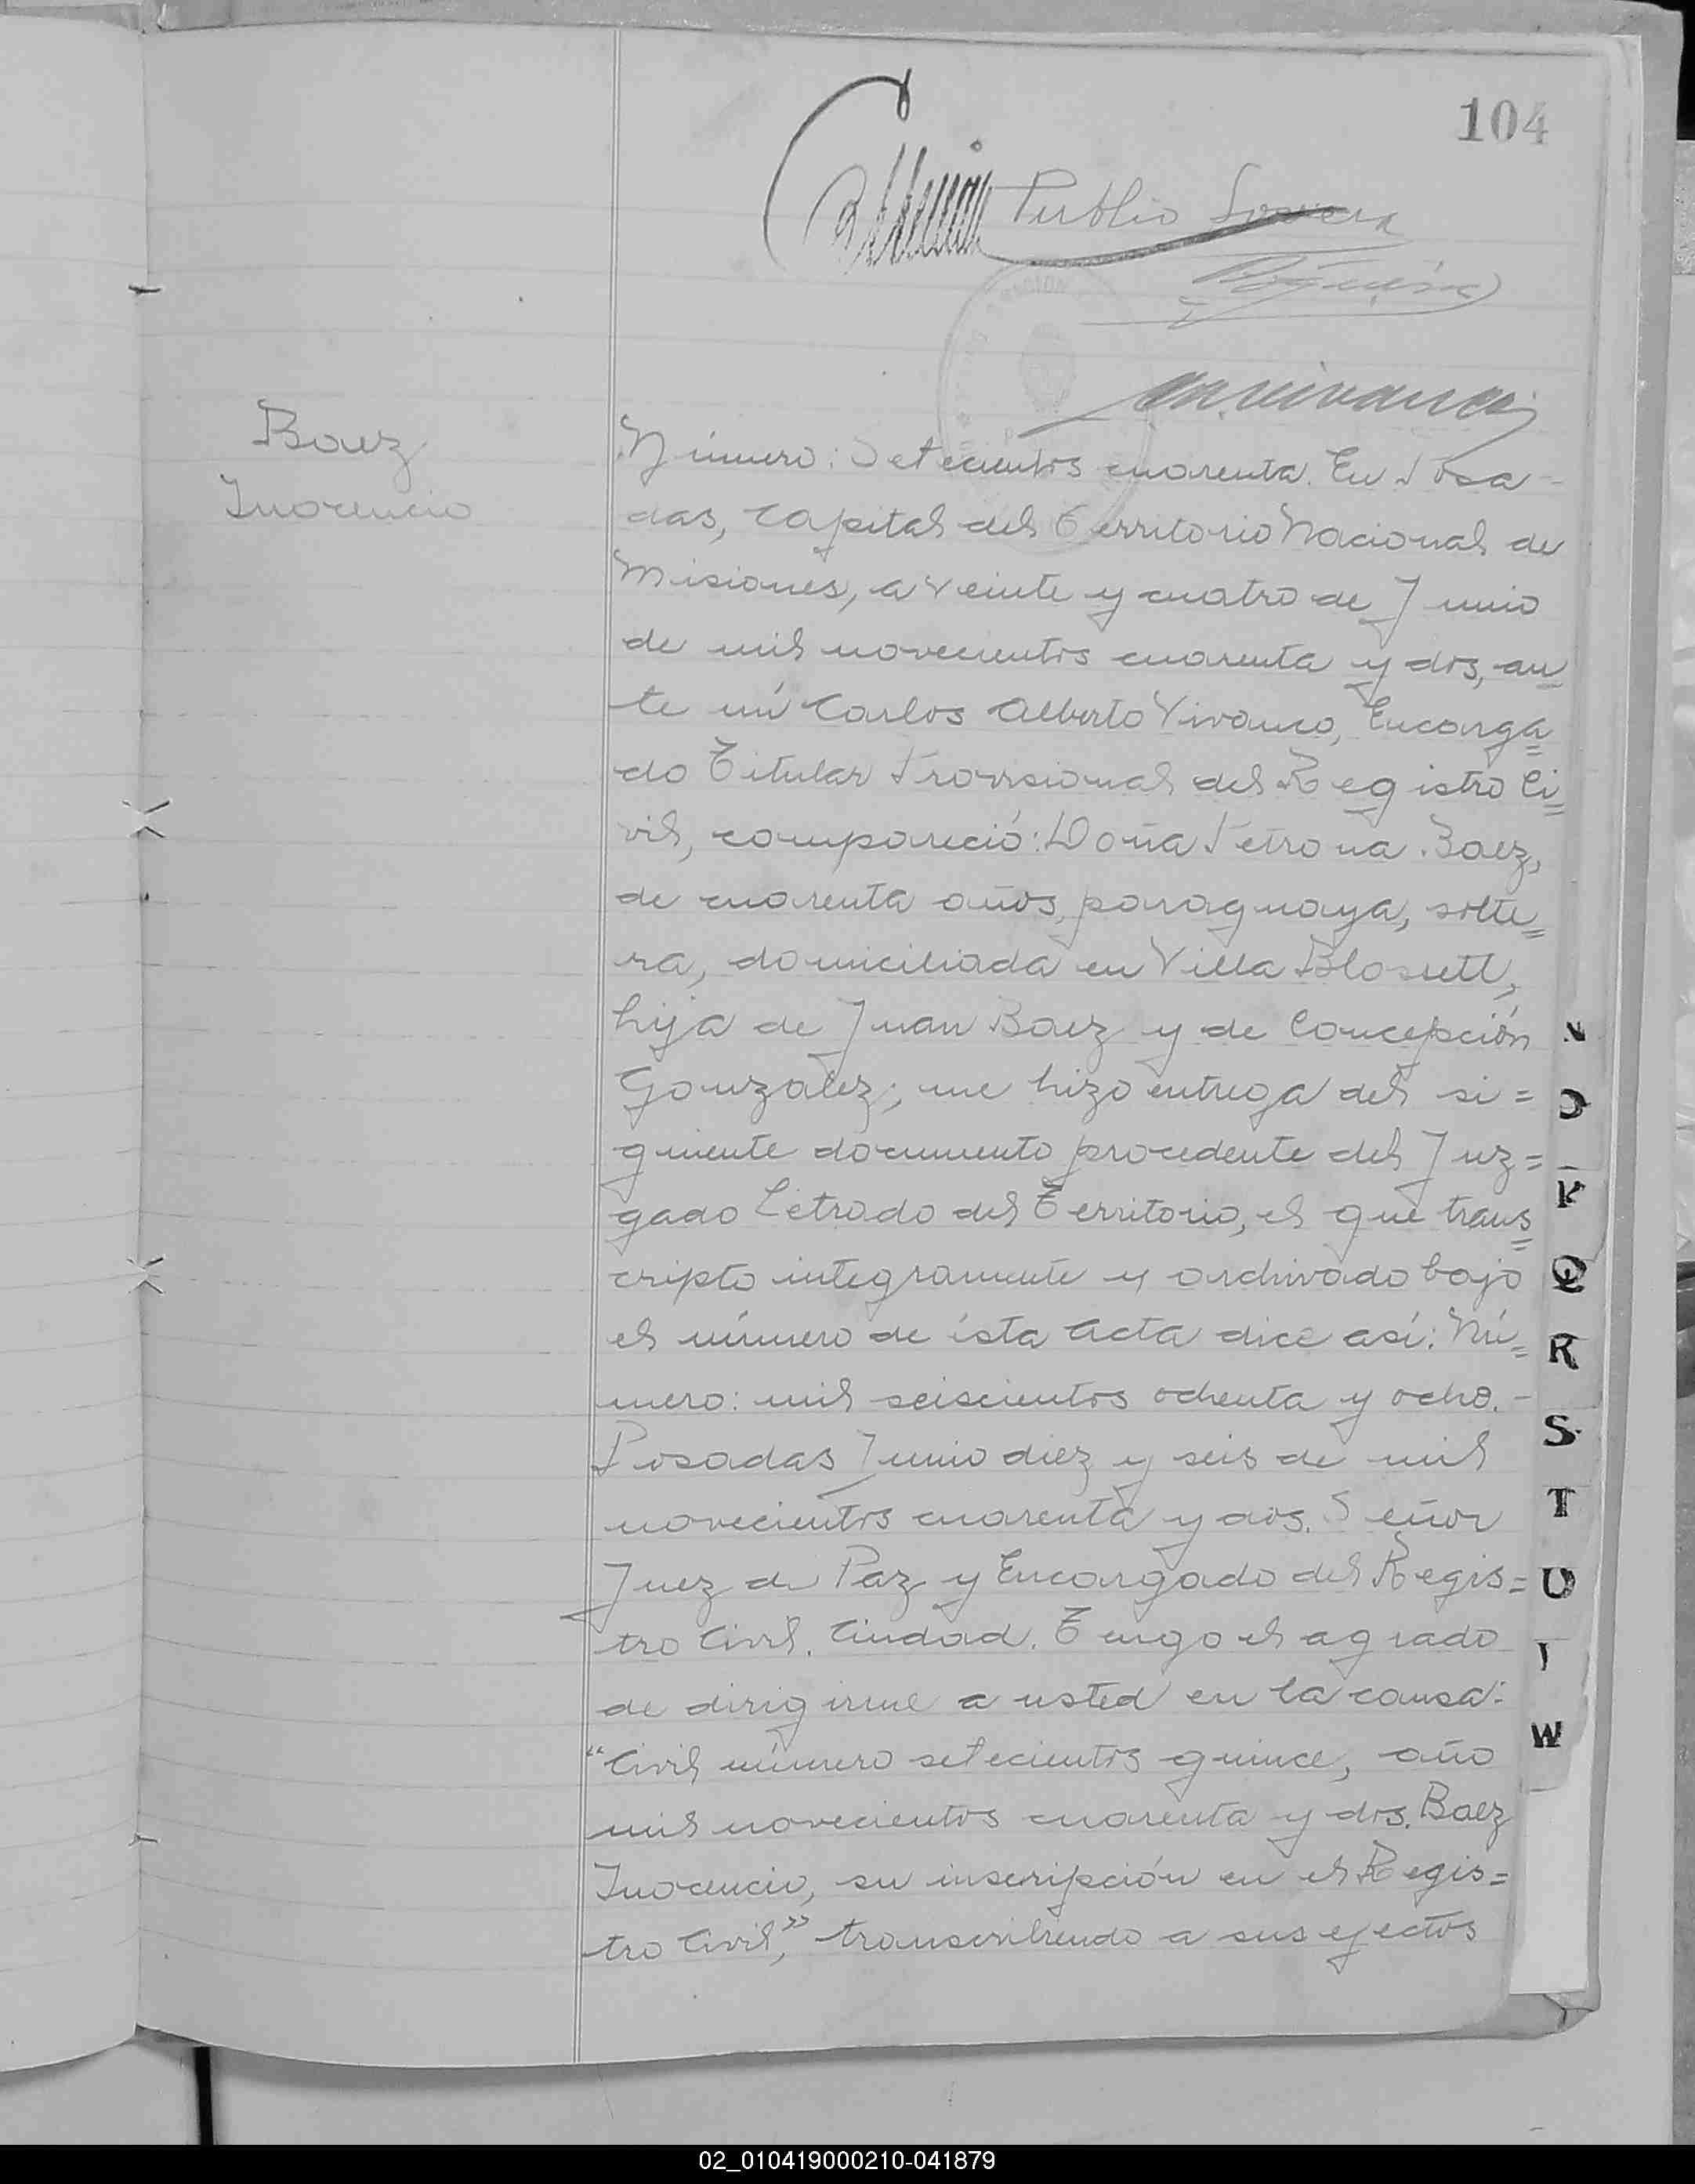 104
Publio
Baez
Inocencio
Número: Setecientos cuarenta. En Posa-
das, Capital del Territorio Nacional de
Misiones, a veinte y cuatro de Junio
de mil novecientos cuarenta y dos, an=
te mí Carlos Alberto Vivanco, Encarga=
do Titular Provisional del Registro Ci=
vil, compareció: Doña Petrona Baez,
de cuarenta años, paraguaya, solte=
ra, domiciliada en Villa Blossett,
hija de Juan Baez y de Concepción
Gonzalez; me hizo entrega del si=
guiente documento procedente del Juz=
gado Letrado del Territorio, el que trans=
cripto integramente y archivado bajo
el número de ésta Acta dice así: Nú=
mero: mil seiscientos ochenta y ocho.-
Posadas Junio diez y seis de mil
novecientos cuarenta y dos. Señor
Juez de Paz y Encargado del Regis=
tro Civil. Ciudad. Tengo el agrado
de dirigirme a usted en la causa:
"Civil número setecientos quince, año
mil novecientos cuarenta y dos. Baez
Inocencio, su inscripción en el Regis=
tro Civil," transcribiendo a sus efectos
Q
R
S
T
U
W
02_010419000210-041879